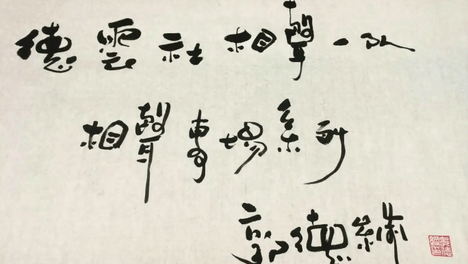 德雲社相聲一队
相聲專場系列
郭德綱